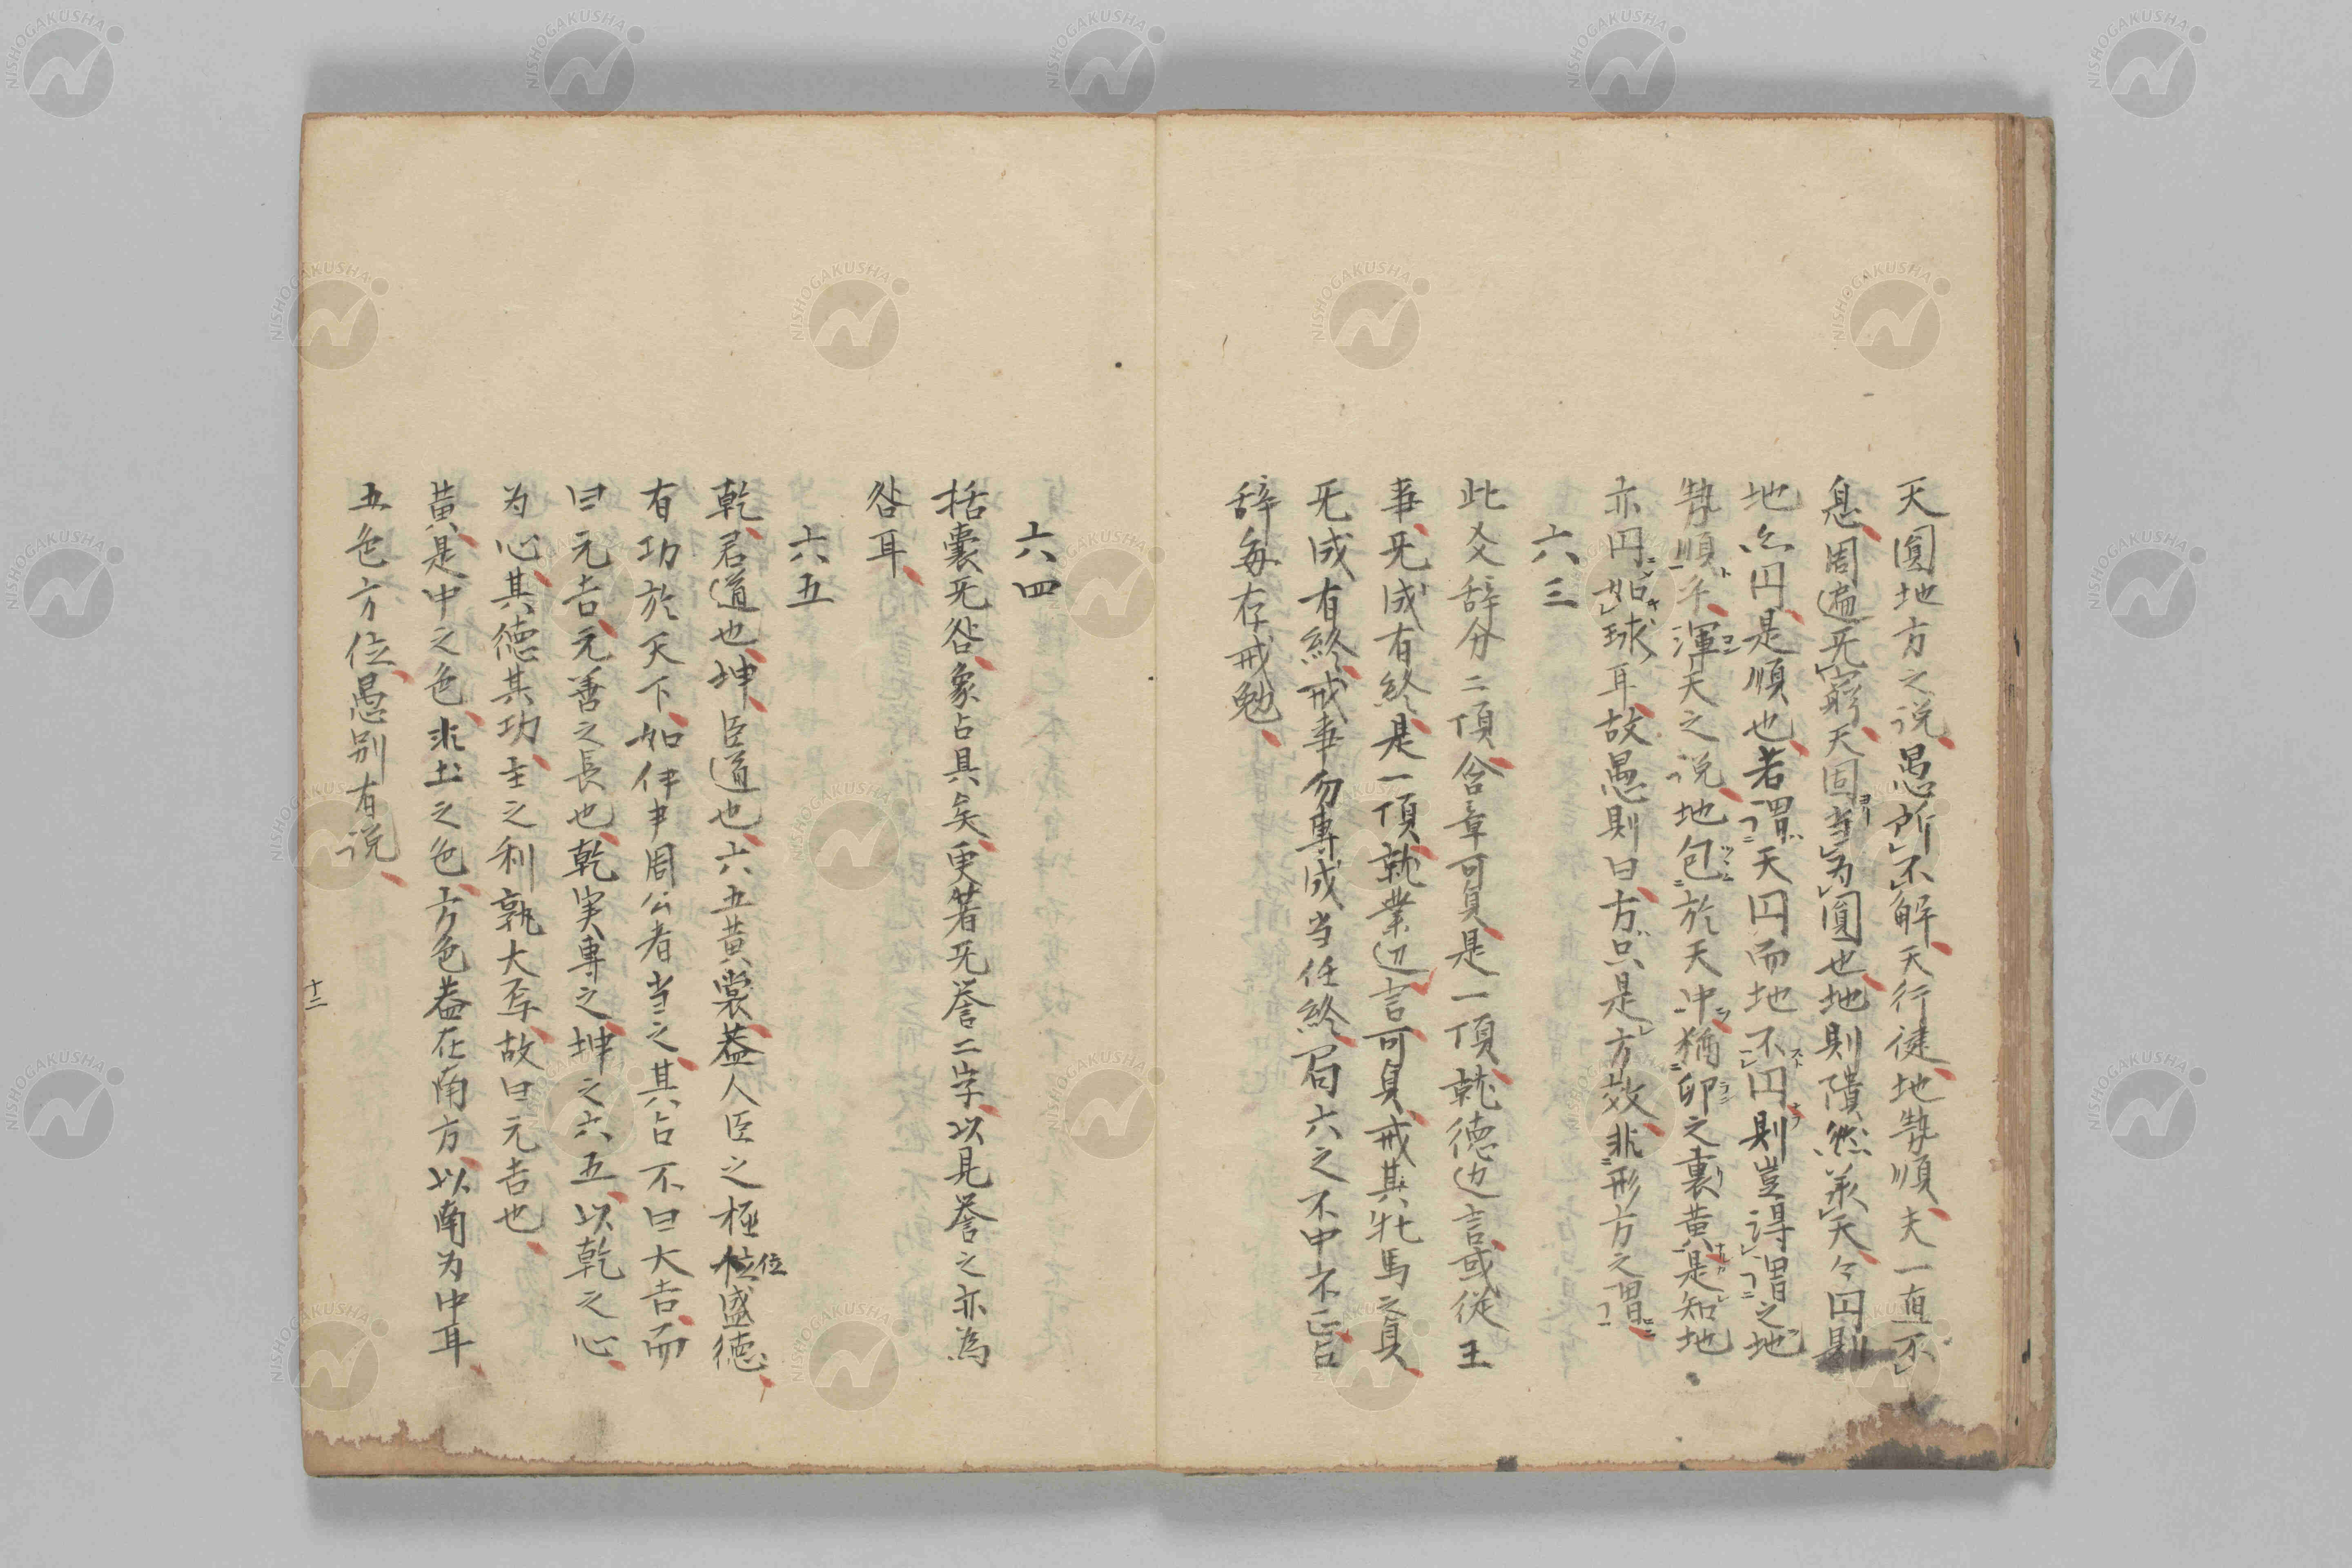 天圓地方之説愚所不解天行健地勢順夫一直不
息周遍旡窮天固当為圓也地則隤然承天々円則
地亦円是順也若謂天円而地不円則豈得謂之地
勢順乎渾天之説地包於天中猶卵之裏黄是知地
亦円如球耳故愚則曰方只是方效非形方之謂
六三
此爻辞分二項含章可貞是一項就徳辺言或従王
事旡成有終是一項就業辺言可貞戒其牝馬之貞
旡成有終戒事勿専成当任終局六之不中不正占
辞每存戒勉
六四
括囊旡咎象占具矣更著旡誉二字以見誉之亦為
咎耳
六五
乾君道也坤臣道也六五黄裳蓋人臣之極位盛徳
有功於天下如伊尹周公者当之其占不曰大吉而
曰元吉元善之長也乾実専之坤之六五以乾之心
为心其徳其功主之利孰大焉故曰元吉也
黄是中之色非土之色方色蓋在南方以南为中耳
五色方位愚别有説
十二
NISHOGAKUSHA